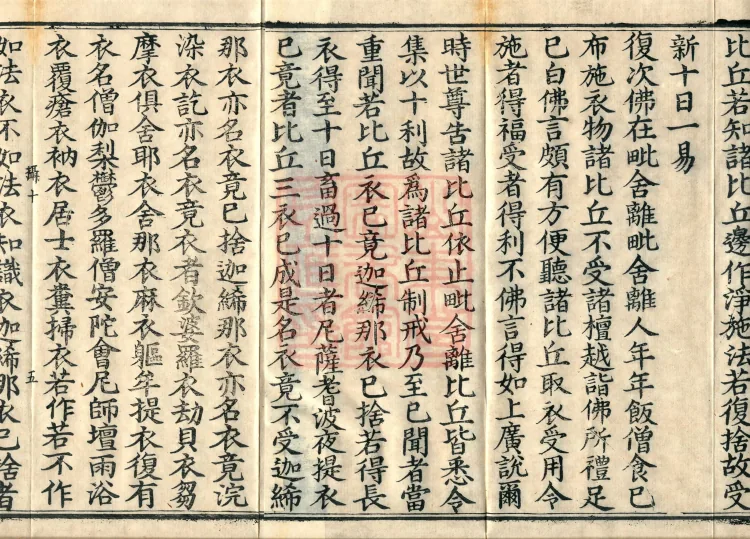 比丘若知諸比丘邊作淨施法若復捨故受
新十日一易
復次佛在毗舍離毗舍離人年年飯僧食已
布施衣物諸比丘不受諸檀越詣佛所禮足
已白佛言頗有方便聽諸比丘取衣受用令
施者得福受者得利不佛言得如上廣說爾
時世尊告諸比丘依止毗舍離比丘皆悉令
集以十利故為諸比丘制戒乃至已聞者當
重聞若比丘衣已竟迦絺那衣已捨若得長
衣得至十日畜過十日者尼薩耆波夜提衣
已竟者比丘三衣已成是名衣竟不受迦絺
那衣亦名衣竟已捨迦絺那衣亦名衣竟浣
染衣訖亦名衣竟衣者欽婆羅衣劫貝衣芻
摩衣俱舍耶衣舍那衣麻衣軀牟提衣復有
衣名僧伽梨鬱多羅僧安陀會尼師壇雨浴
衣覆瘡衣衲衣居士衣糞掃衣若作若不作
五
如法衣不如法衣知識衣迦絺那衣已捨者